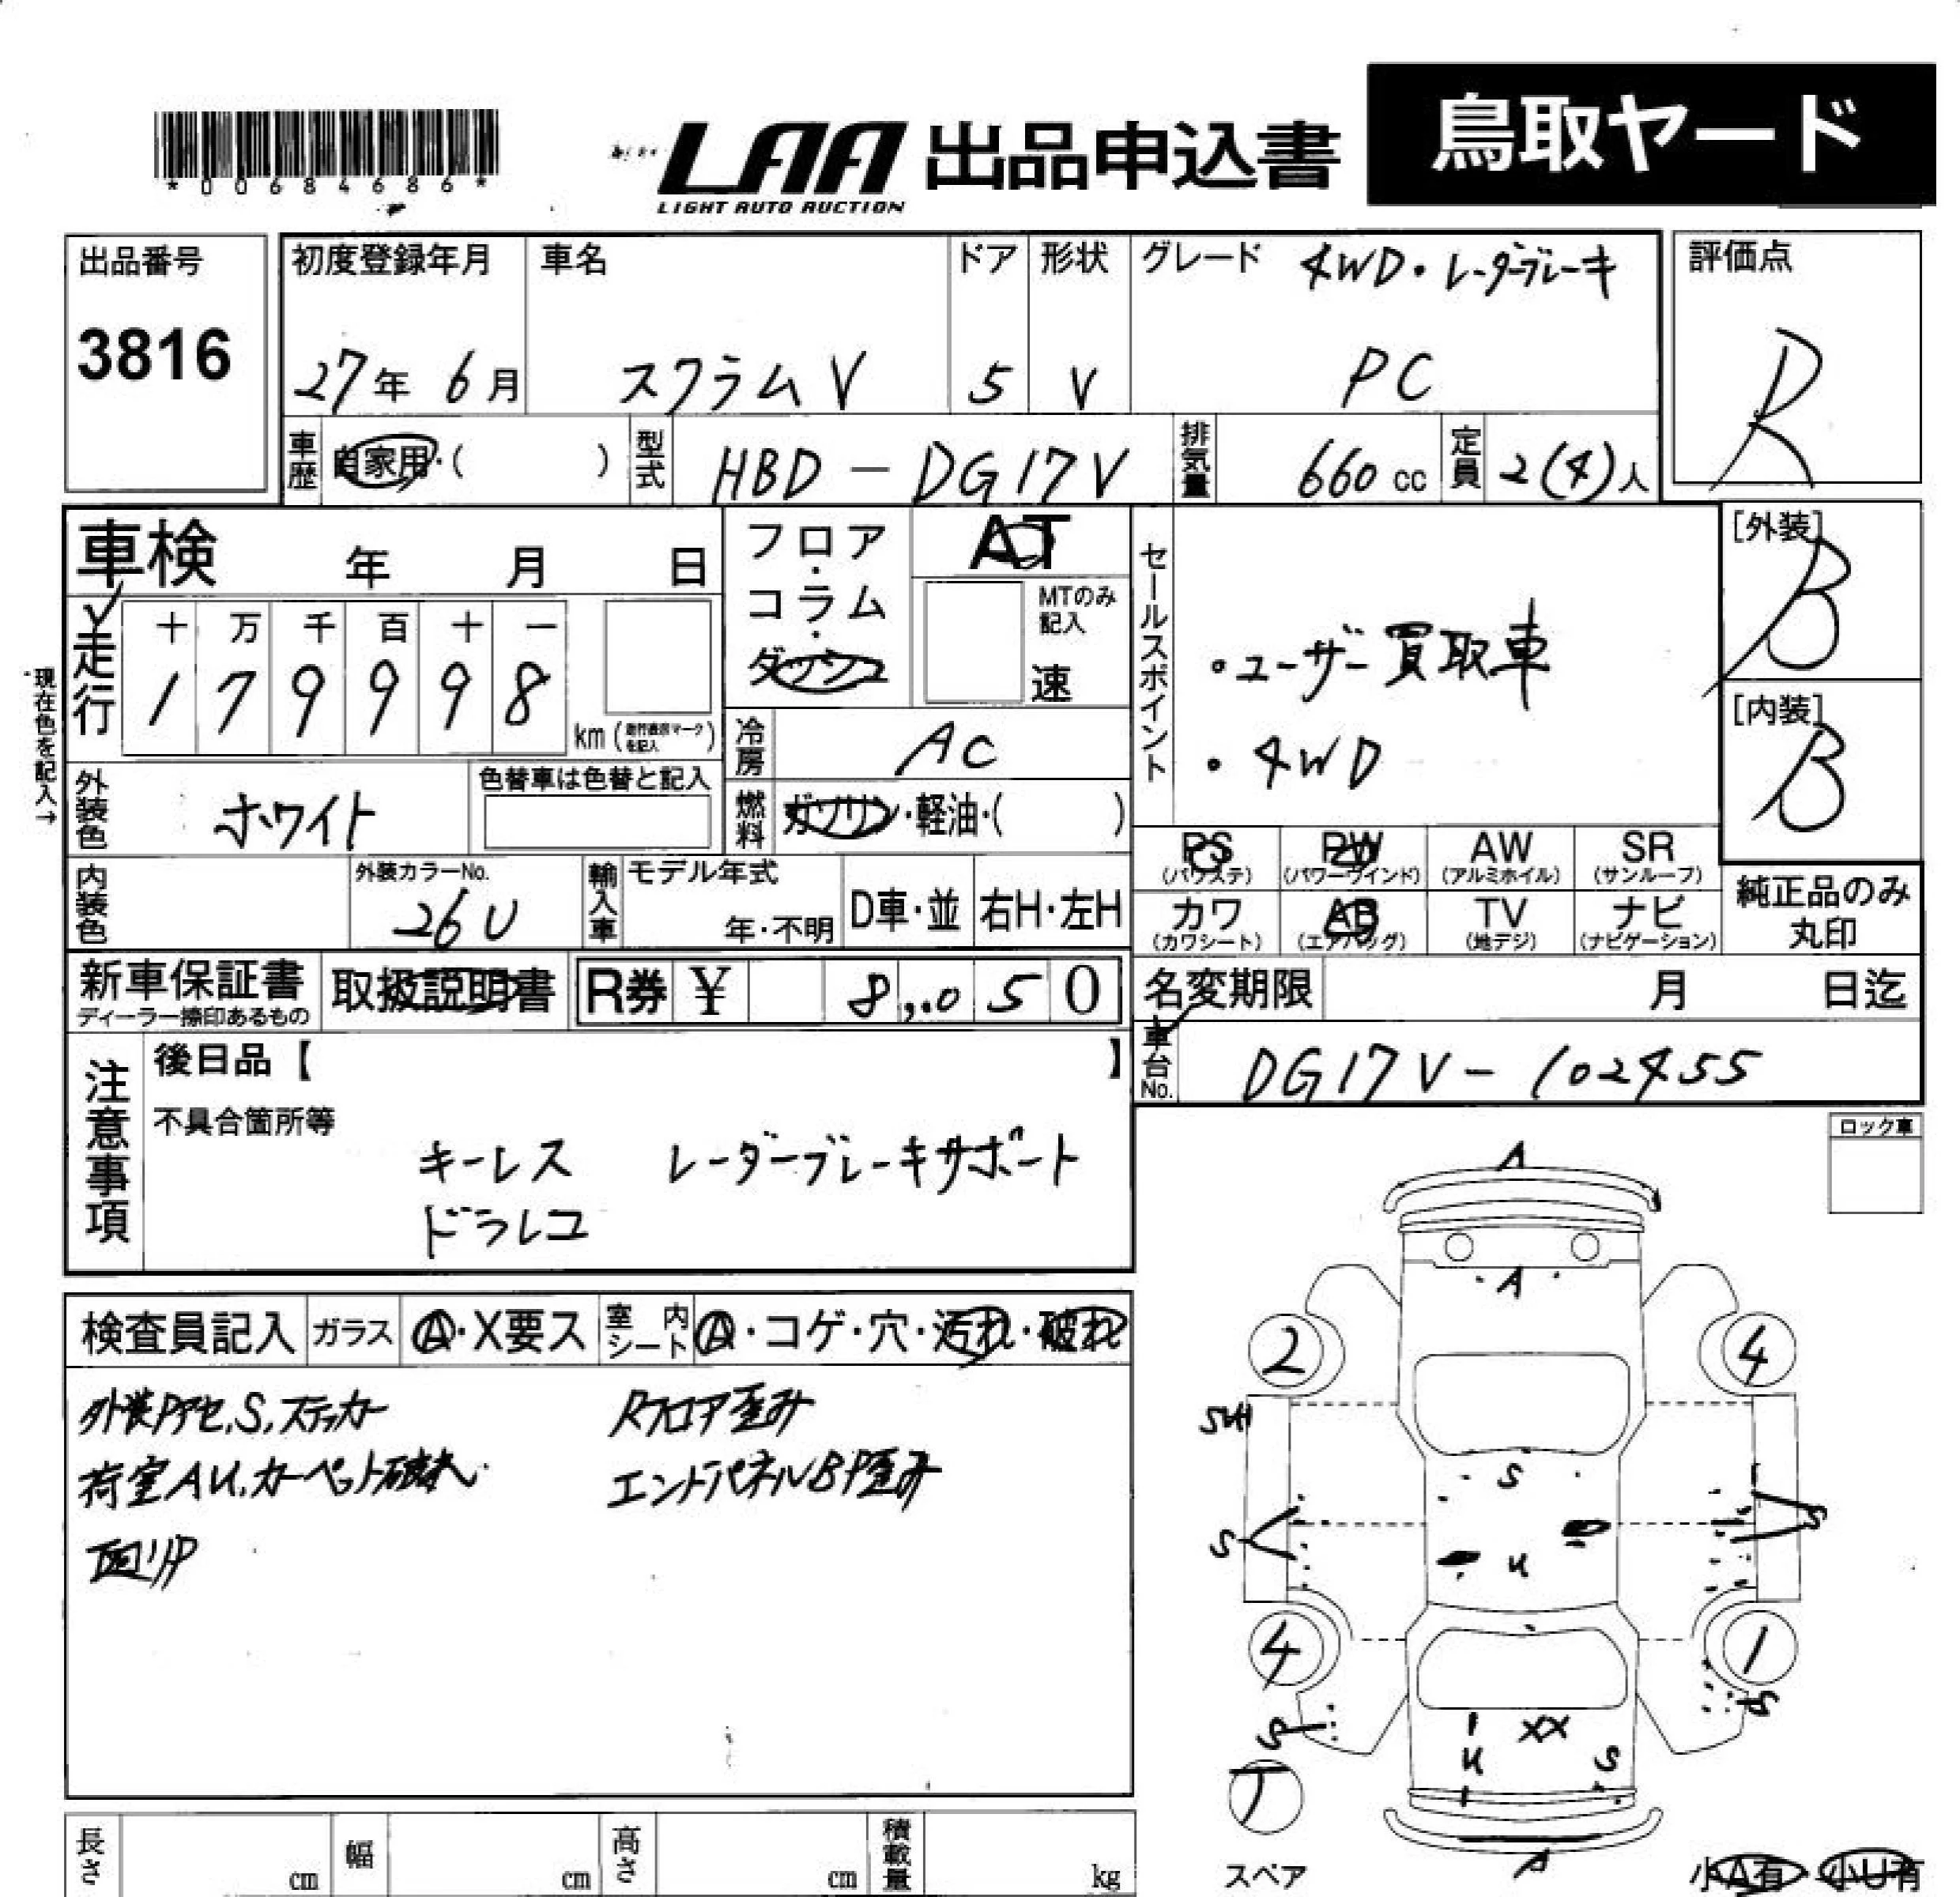 *00684686*
LAA 出品申込書 鳥取ヤード
LIGHT AUTO AUCTION
出品番号 3816
初度登録年月 27年 6月
車名 スクラムV
ドア 5
形状 V
グレード 4WD・レーダーブレーキ
PC
評価点 R
車歴 自家用・( )
型式 HBD-DG17V
排気量 660 cc
定員 2(4)人
車検 年 月 日
フロア・コラム・ダッシュ
AT
MTのみ記入 速
セールスポイント
・ユーザー買取車
・4WD
[外装] B
[内装] B
現在色を記入→
走行 十 万 千 百 十 一
1 7 9 9 9 8 km
冷房 AC
外装色 ホワイト
色替車は色替と記入
燃料 ガソリン・軽油・( )
PS (パワステ) PW (パワーウインド) AW (アルミホイル) SR (サンルーフ)
カワ (カワシート) AB (エアバッグ) TV (地デジ) ナビ (ナビゲーション)
純正品のみ丸印
内装色
外装カラーNo. 26U
輸入車 モデル年式 年・不明 D車・並 右H・左H
新車保証書 ディーラー捺印あるもの
取扱説明書
R券 ¥ 8,050
名変期限 月 日迄
車台No. DG17V-102455
注意事項
後日品【 】
不具合箇所等
キーレス レーダーブレーキサポート
ドラレコ
ロック車
検査員記入 ガラス A・X要ス 室内シート A・コゲ・穴・汚れ・破れ
外装Pアセ,S,ステッカー Rフロア歪み
荷室AU,カーペット破れ エンドパネルBP歪み
A
A
2 4
S
S
S S
U
4 1
S S
XX
U S
T
A
スペア
小A有・小U有
長さ cm 幅 cm 高さ cm 積載量 kg